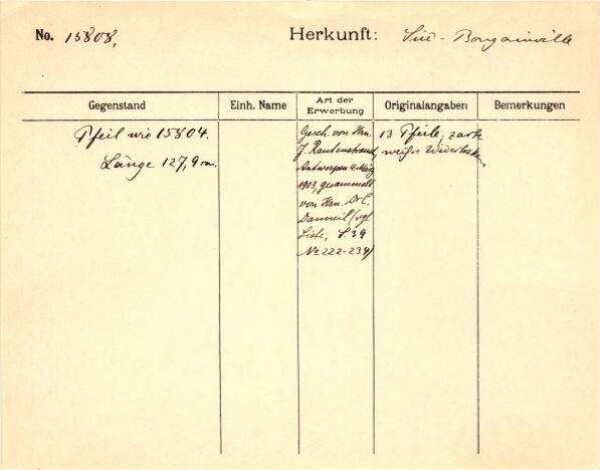 No. 15808.
Herkunft: Süd-Bougainville
Gegenstand
Einh. Name
Art der
Erwerbung
Originalangaben
Bemerkungen
Pfeil wie 15804.
Länge 127,9 cm.
Gesch. von Hrn.
J. Rautenstrauch
Antwerpen
1903, gesammelt
von Hrn. D. C.
Damm (vgl.
Liste, S 39
Nr. 222-234)
13 Pfeile, zarte
weiße Widerhaken